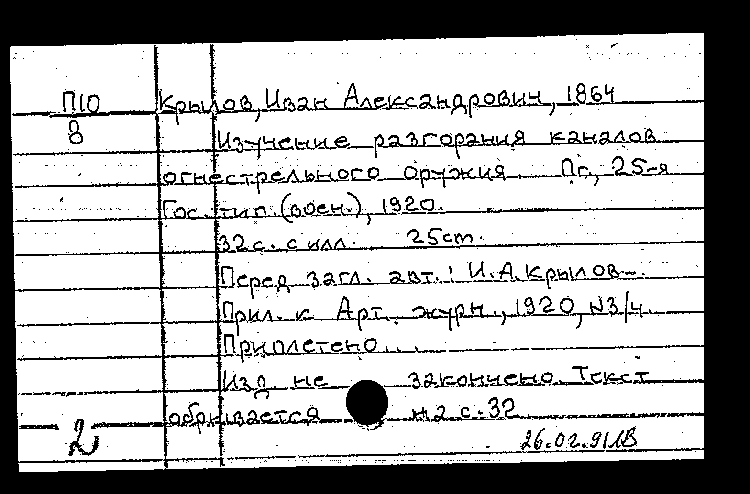 П10 Крылов, Иван Александрович, 1864
8 Изучение разгорания каналов
огнестрельного оружия. Пг., 25-я
Гос. тип. (воен.), 1920.
32 с. с илл. 25 cm.
Перед загл. авт.: И.А. Крылов.
Прил. к Арт. журн., 1920, N3/4.
Приплетено...
Изд. не закончено. Текст
обрывается на с. 32
2
26.02.91